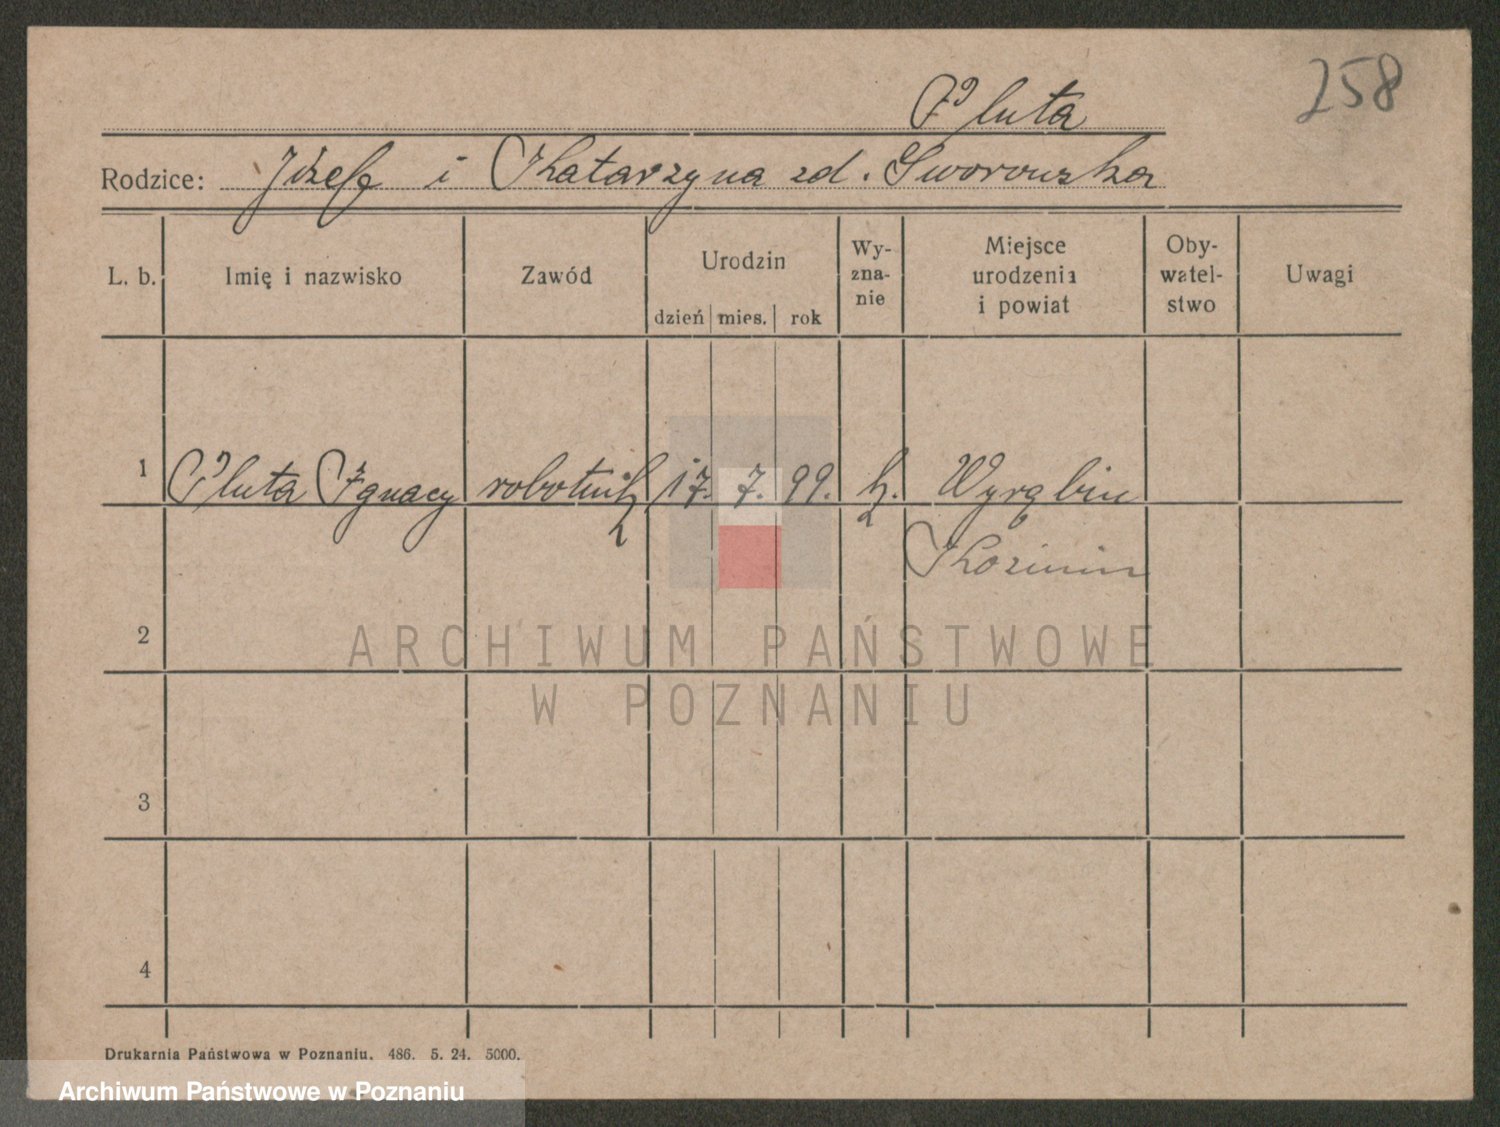 258
Pluta
Rodzice: Józef i Katarzyna zd. Sworowska
L. b. Imię i nazwisko Zawód Urodzin dzień mies. rok Wy-zna-nie Miejsce urodzenia i powiat Oby-watel-stwo Uwagi
1 Pluta Ignacy robotnik 17. 7. 99. k. Wyrąbin
Kozimin
2
ARCHIWUM PAŃSTWOWE
W POZNANIU
3
4
Drukarnia Państwowa w Poznaniu. 486. 5. 24. 5000.
Archiwum Państwowe w Poznaniu